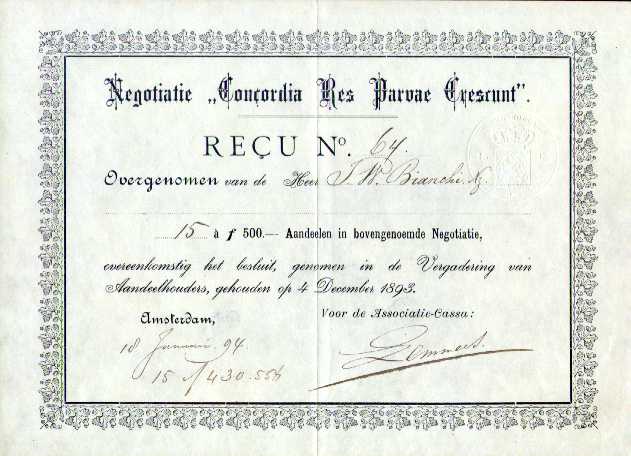 Negotiatie „Concordia Res Parvae Crescunt".
REÇU No. 64.
Overgenomen van de Heer J. W. Bianchi
15 à ƒ 500.— Aandeelen in bovengenoemde Negotiatie,
overeenkomstig het besluit, genomen in de Vergadering van
Aandeelhouders, gehouden op 4 December 1893.
Amsterdam, Voor de Associatie-Cassa:
18 Januari 94
15